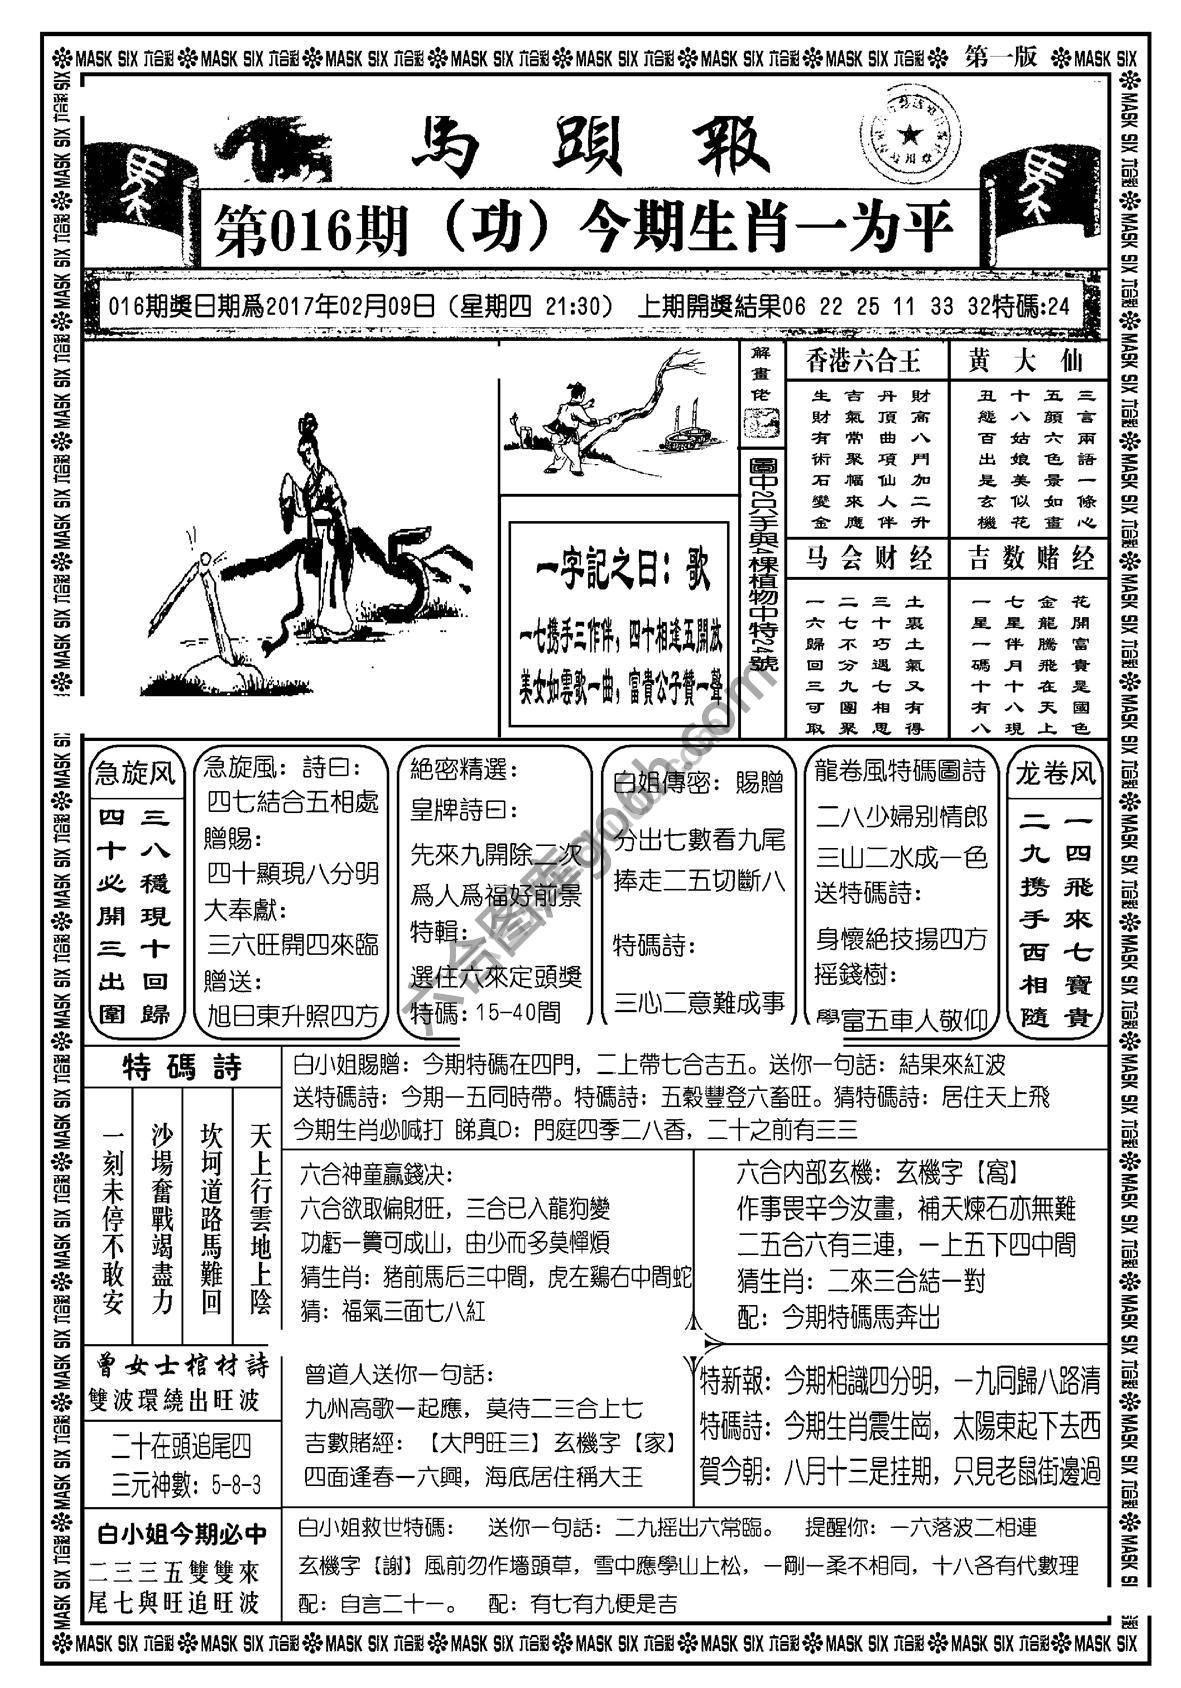 MASK SIX 六合彩 MASK SIX 六合彩 MASK SIX 六合彩 MASK SIX 六合彩 MASK SIX 六合彩 MASK SIX 六合彩 MASK SIX 六合彩 第一版 MASK SIX
馬頭報
第016期（功）今期生肖一为平
016期獎日期爲2017年02月09日（星期四 21:30） 上期開獎結果06 22 25 11 33 32特碼:24
解畫佬
圖中2只八手與4棵植物中特24號
一字記之曰：歌
一七携手三作伴，四十相逢五開放
美女如雲歌一曲，富貴公子贊一聲
香港六合王
財高八門加二升
丹頂曲項仙人伴
吉氣常聚福來應
生財有術石變金
黄大仙
三言兩語一條心
五顏六色景如畫
十八姑娘美似花
丑態百出是玄機
马会财经
土裏土氣又有得
三十巧遇七相思
二七不分九團聚
一六歸回三可取
吉数赌经
花開富貴是國色
金龍騰飛在天上
七星伴月十八現
一星一碼十有八
急旋风
三八穩現十回歸
四十必開三出圍
急旋風：詩曰：
四七結合五相處
贈賜：
四十顯現八分明
大奉獻：
三六旺開四來臨
贈送：
旭日東升照四方
絕密精選：
皇牌詩曰：
先來九開除二次
爲人爲福好前景
特輯：
選住六來定頭獎
特碼：15-40間
白姐傳密：賜贈
分出七數看九尾
捧走二五切斷八
特碼詩：
三心二意難成事
龍卷風特碼圖詩
二八少婦别情郎
三山二水成一色
送特碼詩：
身懷絕技揚四方
摇錢樹：
學富五車人敬仰
龙卷风
一四飛來七寶貴
二九携手西相隨
特碼詩
天上行雲地上陰
坎坷道路馬難回
沙場奮戰竭盡力
一刻未停不敢安
白小姐賜贈：今期特碼在四門，二上帶七合吉五。送你一句話：結果來紅波
送特碼詩：今期一五同時帶。特碼詩：五穀豐登六畜旺。猜特碼詩：居住天上飛
今期生肖必喊打 睇真D：門庭四季二八香，二十之前有三三
六合神童贏錢决：
六合欲取偏財旺，三合已入龍狗變
功虧一簣可成山，由少而多莫憚煩
猜生肖：猪前馬后三中間，虎左鷄右中間蛇
猜：福氣三面七八紅
六合内部玄機：玄機字【窩】
作事畏辛今汝畫，補天煉石亦無難
二五合六有三連，一上五下四中間
猜生肖：二來三合結一對
配：今期特碼馬奔出
曾女士棺材詩
雙波環繞出旺波
二十在頭追尾四
三元神數：5-8-3
曾道人送你一句話：
九州高歌一起應，莫待二三合上七
吉數賭經：【大門旺三】玄機字【家】
四面逢春一六興，海底居住稱大王
特新報：今期相識四分明，一九同歸八路清
特碼詩：今期生肖震生崗，太陽東起下去西
賀今朝：八月十三是挂期，只見老鼠街邊過
白小姐今期必中
二三三五雙雙來
尾七與旺追旺波
白小姐救世特碼： 送你一句話：二九摇出六常臨。 提醒你：一六落波二相連
玄機字【謝】風前勿作墻頭草，雪中應學山上松，一剛一柔不相同，十八各有代數理
配：自言二十一。 配：有七有九便是吉
六合图库godh.com
MASK SIX 六合彩 MASK SIX 六合彩 MASK SIX 六合彩 MASK SIX 六合彩 MASK SIX 六合彩 MASK SIX 六合彩 MASK SIX 六合彩 MASK SIX 六合彩 MASK SIX